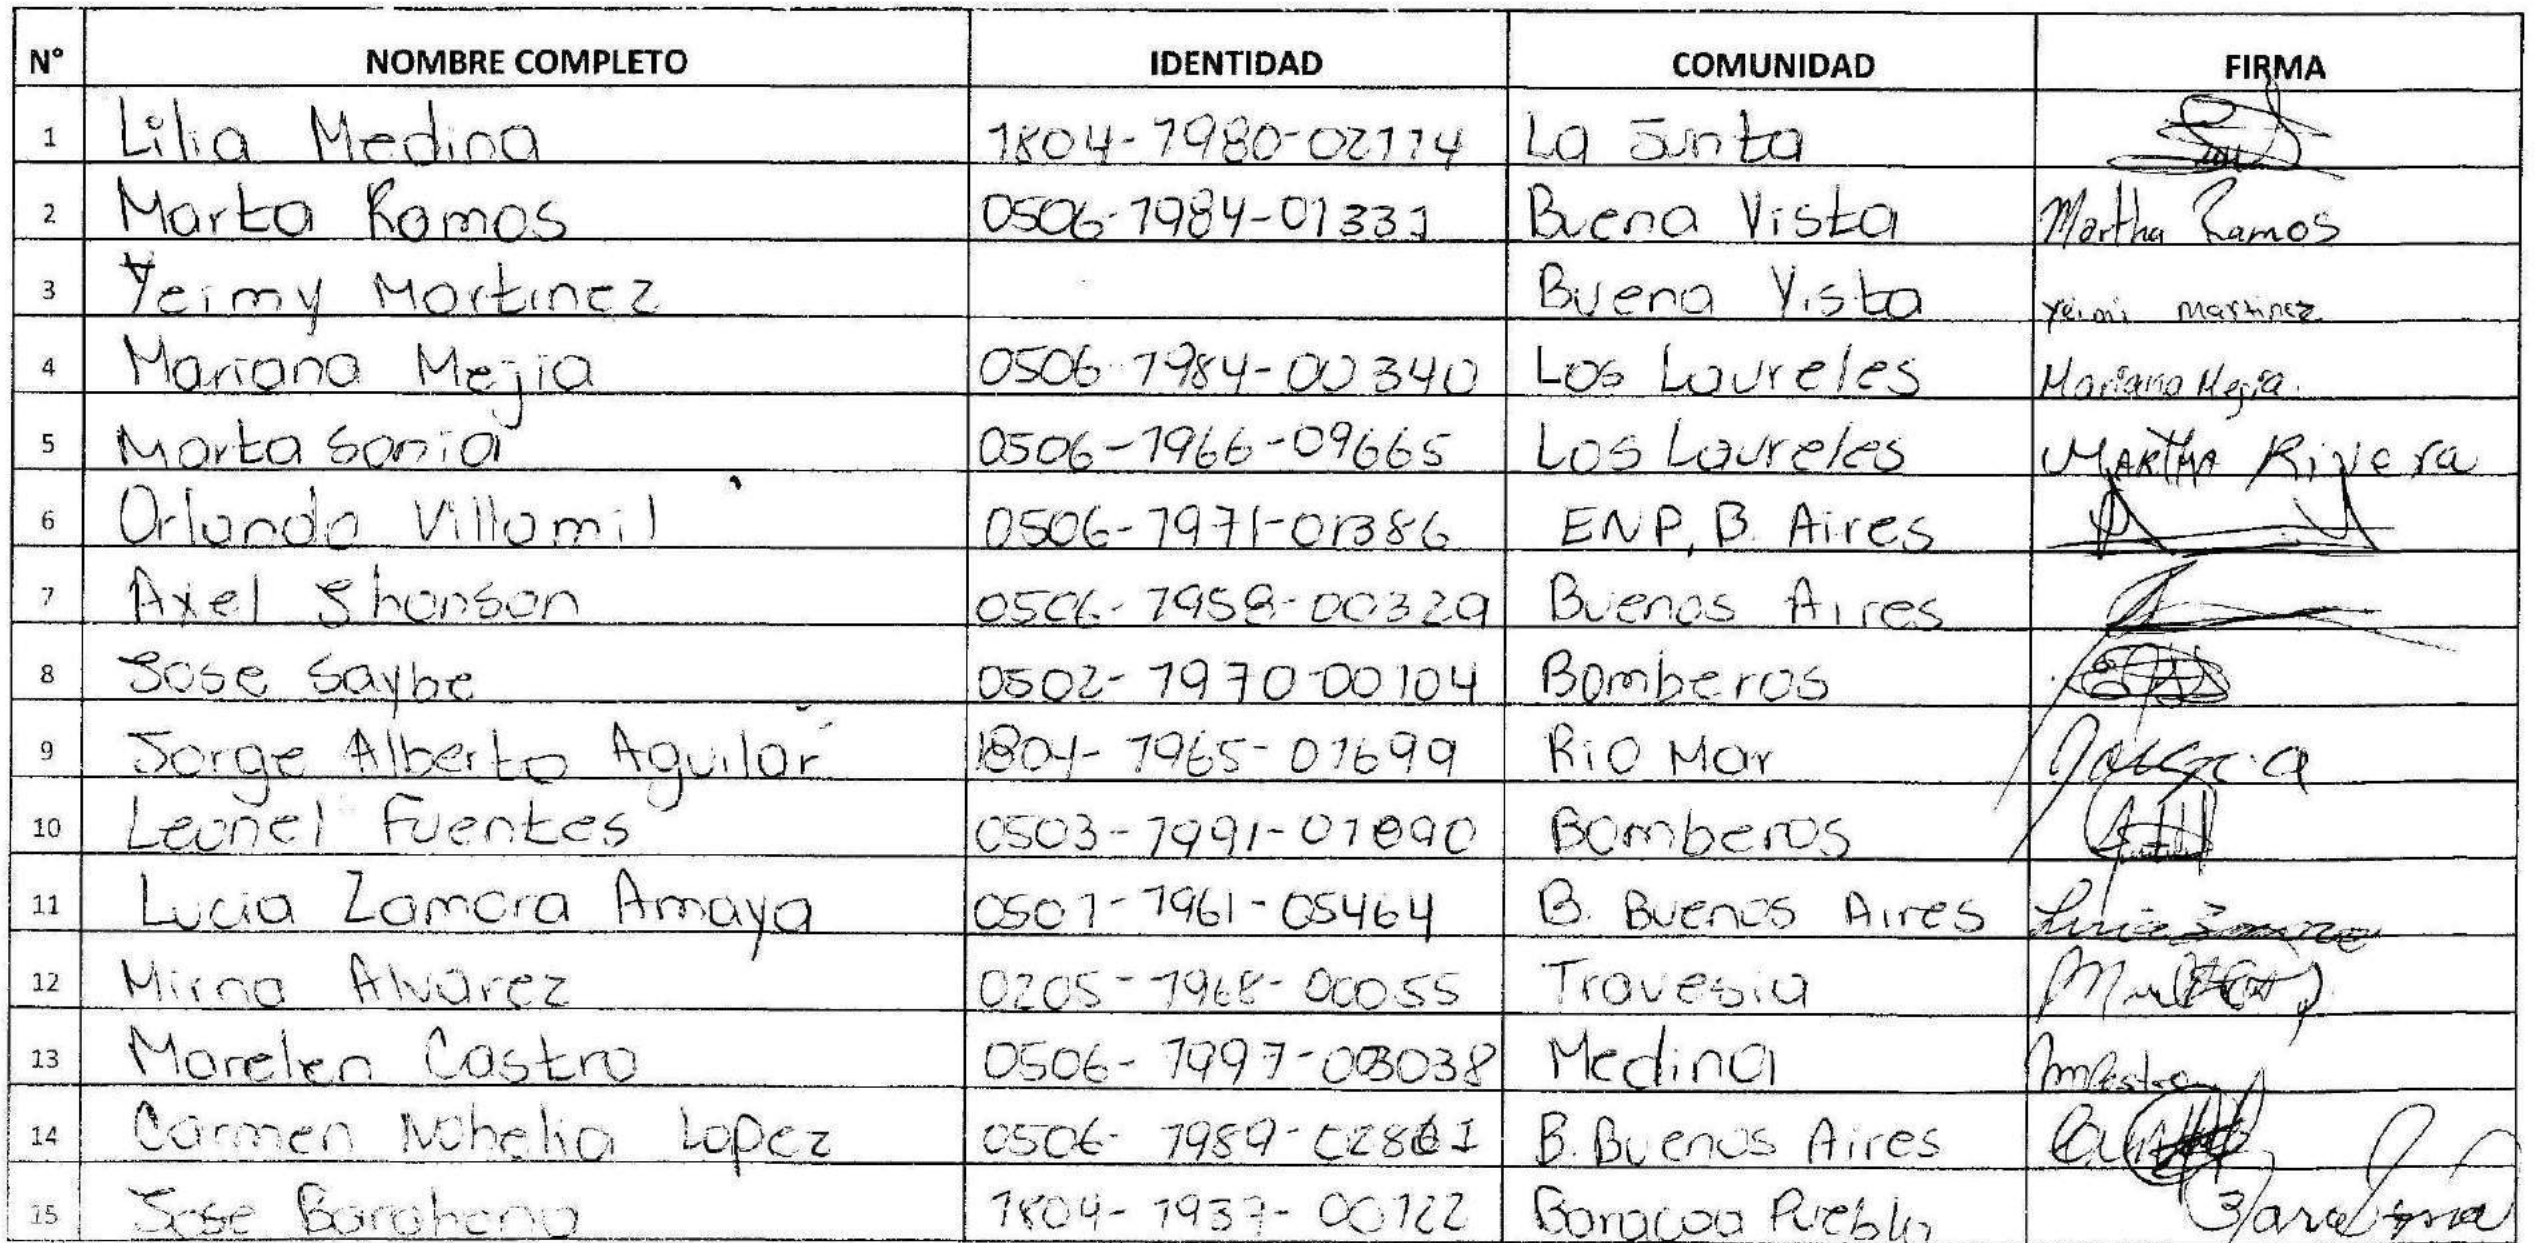 N° NOMBRE COMPLETO IDENTIDAD COMUNIDAD FIRMA
1 Lilia Medina 1804-1980-02114 La Junta
2 Marta Ramos 0506-1984-01331 Buena Vista Martha Ramos
3 Yeimy Martinez Buena Vista Yeimi Martinez
4 Mariana Mejia 0506-1984-00340 Los Laureles Mariana Mejia.
5 Marta Sonia 0506-1966-09665 Los Laureles MARTHA Rivera
6 Orlando Villamil 0506-1971-01386 ENP, B. Aires
7 Axel Jhonson Buenos Aires
8 Jose Saybe 0502-1970-00104 Bomberos
9 Jorge Alberto Aguilar 1804-1965-01699 Rio Mar
10 Leonel Fuentes Bomberos
11 Lucia Zamora Amaya 0501-1961-05464 B. Buenos Aires
12 Mirna Alvarez 0205-1968-00055 Travesia
13 Marelen Castro Medina
14 Carmen Nohelia Lopez B. Buenos Aires
15 Jose Barahona 1804-1937-00122 Baracoa Pueblo